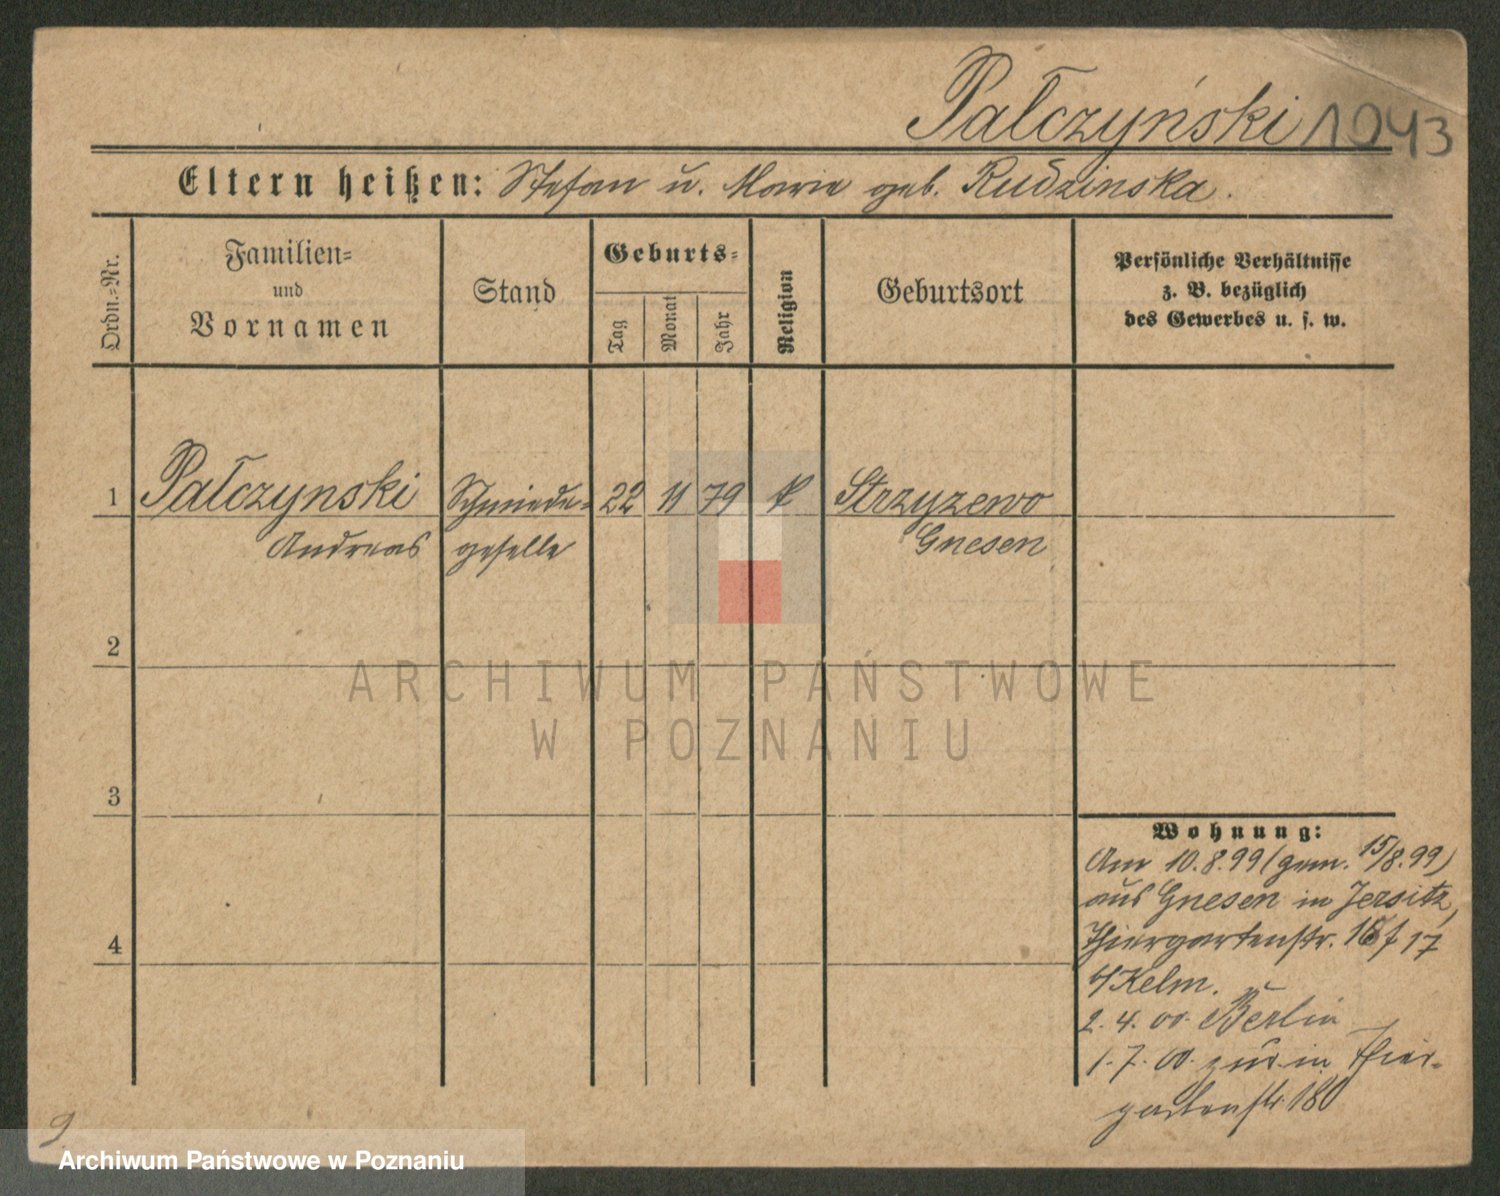 Pałczyński 1943
Eltern heißen: Stefan u. Marie geb. Rudzinska.
Ordn.=Nr.
Familien=
und
Vornamen
Stand
Geburts=
Tag
Monat
Jahr
Religion
Geburtsort
Persönliche Verhältnisse
z. B. bezüglich
des Gewerbes u. s. w.
1 Pałczynski Schmiede= 22 11 79 k Strzyzewo
Andreas geselle Gnesen
2
ARCHIWUM PAŃSTWOWE
W POZNANIU
3
Wohnung:
Am 10.8.99 (gem. 15/8.99)
aus Gnesen in Jersitz,
Thiergartenstr. 17
Kelm.
2.4.00. Berlin
1.7.00. zur. in Thier-
gartenstr. 180
4
9
Archiwum Państwowe w Poznaniu